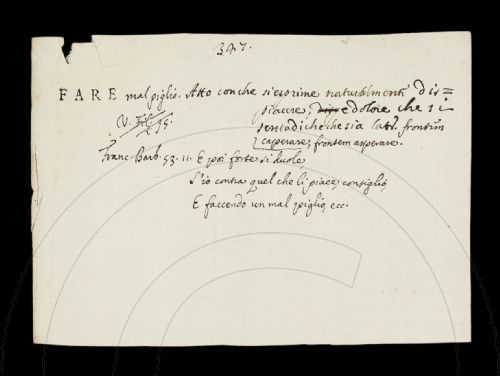 347.
FARE mal piglio. Atto con che si esprime naturalmente dis=
piacere, e dolore che si
senta di che che sia. Lat. frontem
caperare, frontem asperare.
Franc. Barb. 53. 11. E poi forte si duole,
S'io contra quel che li piace, consiglio,
E faccendo un mal piglio, ecc.